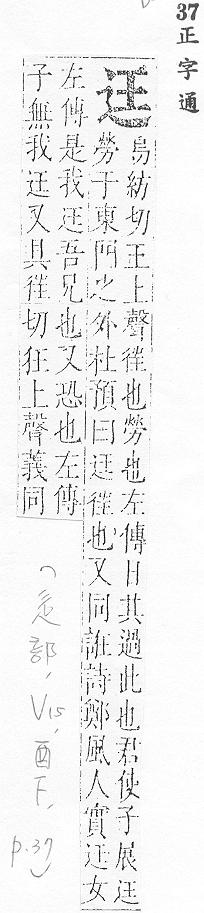 37正字通
迋
烏紡切王上聲徃也勞也左傳日其過此也君使子展迋
勞于東門之外杜預曰迋徃也又同誑詩鄭風人實迋女
左傳是我迋吾兄也又恐也左傳
子無我迋又具徃切狂上聲義同
(辵部, V15, 酉下, p.37)